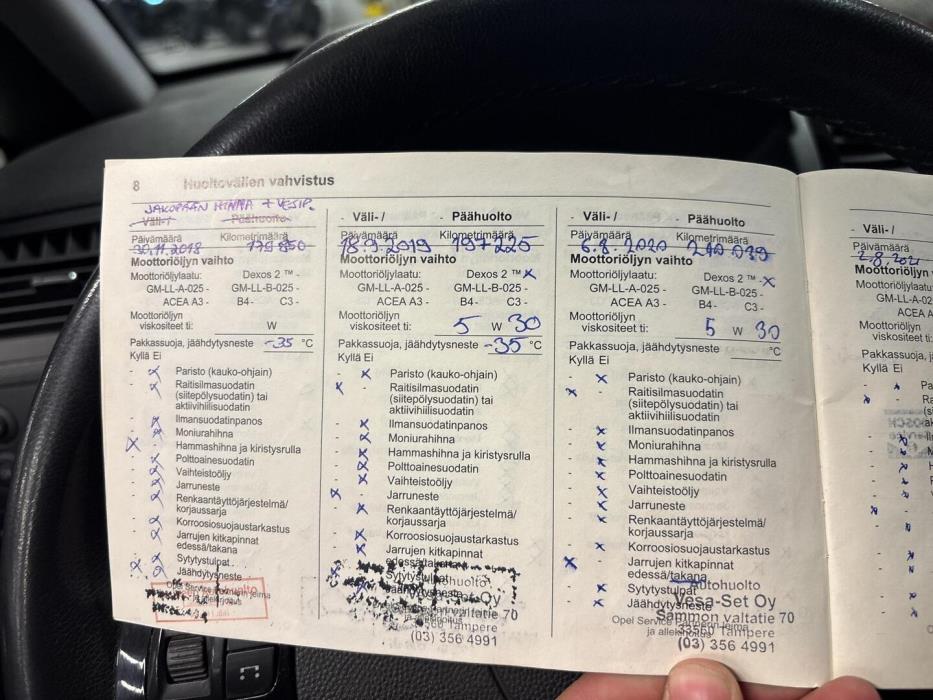 8 Huoltovälien vahvistus
JAKOPÄÄN HIHNA + VESIP.
Väli-/ Päähuolto
Päivämäärä Kilometrimäärä
30.11.2018 179 850
Moottoriöljyn vaihto
Moottoriöljylaatu: Dexos 2 ™ -
GM-LL-A-025 - GM-LL-B-025 -
ACEA A3 - B4- C3 -
Moottoriöljyn
viskositeet ti: W
Pakkassuoja, jäähdytysneste -35 °C
Kyllä Ei
- x Paristo (kauko-ohjain)
- x Raitisilmasuodatin
(siitepölysuodatin) tai
aktiivihiilisuodatin
- x Ilmansuodatinpanos
- x Moniurahihna
x - Hammashihna ja kiristysrulla
- x Polttoainesuodatin
- x Vaihteistoöljy
- x Jarruneste
- x Renkaantäyttöjärjestelmä/
korjaussarja
- x Korroosiosuojaustarkastus
- x Jarrujen kitkapinnat
edessä/takana
- x Sytytystulpat
x - Jäähdytysneste
- Väli- / - Päähuolto
Päivämäärä Kilometrimäärä
18.9.2019 197225
Moottoriöljyn vaihto
Moottoriöljylaatu: Dexos 2 ™ x
GM-LL-A-025 - GM-LL-B-025 -
ACEA A3 - B4- C3 -
Moottoriöljyn
viskositeet ti: 5 W 30
Pakkassuoja, jäähdytysneste -35 °C
Kyllä Ei
- x Paristo (kauko-ohjain)
x - Raitisilmasuodatin
(siitepölysuodatin) tai
aktiivihiilisuodatin
- x Ilmansuodatinpanos
- x Moniurahihna
- x Hammashihna ja kiristysrulla
- x Polttoainesuodatin
- x Vaihteistoöljy
x - Jarruneste
- x Renkaantäyttöjärjestelmä/
korjaussarja
- x Korroosiosuojaustarkastus
- x Jarrujen kitkapinnat
edessä/takana
Sytytystulpat
(03) 356 4991
- Väli- / - Päähuolto
Päivämäärä Kilometrimäärä
6.8.2020 210 039
Moottoriöljyn vaihto
Moottoriöljylaatu: Dexos 2 ™ -x
GM-LL-A-025 - GM-LL-B-025 -
ACEA A3 - B4- C3 -
Moottoriöljyn
viskositeet ti: 5 W 30
Pakkassuoja, jäähdytysneste °C
Kyllä Ei
- x Paristo (kauko-ohjain)
x - Raitisilmasuodatin
(siitepölysuodatin) tai
aktiivihiilisuodatin
- x Ilmansuodatinpanos
- x Moniurahihna
- x Hammashihna ja kiristysrulla
- x Polttoainesuodatin
- x Vaihteistoöljy
- x Jarruneste
- x Renkaantäyttöjärjestelmä/
korjaussarja
- x Korroosiosuojaustarkastus
x - Jarrujen kitkapinnat
edessä/takana
- x Sytytystulpat
- x Jäähdytysneste
Autohuolto
Vesa-Set Oy
Sammon valtatie 70
Tampere
(03) 356 4991
- Väli- /
Päivämäärä
2.8.2021
Moottoriöljyn
Moottoriöljylaatu:
GM-LL-A-02
ACEA A
Moottoriöljyn
viskositeet ti:
Pakkassuoja, jä
Kyllä Ei